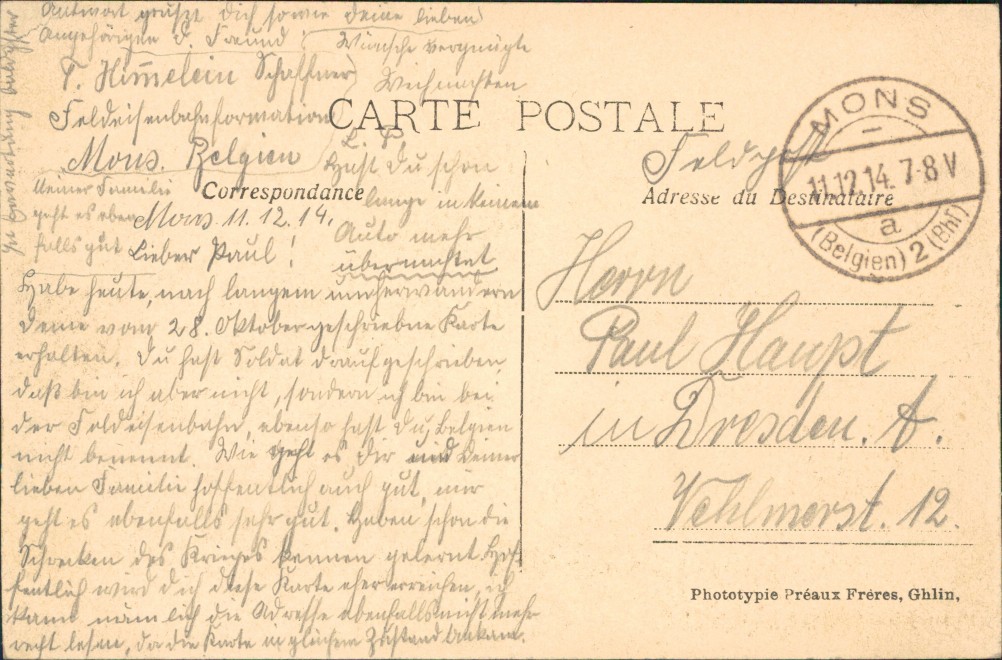 CARTE POSTALE
Correspondance
Mons. 11. 12. 14.
Lieber Paul!
Habe heute, nach langem umherwandern
deine vom 28. Oktober geschriebne Karte
erhalten. Du hast Soldat draufgeschrieben,
daß bin ich aber nicht, sondern ich bin bei
der Feldeisenbahn, ebenso hast du, Belgien
nicht benennt. Wie geht es dir und deiner
lieben Familie hoffentlich auch gut, mir
geht es ebenfalls sehr gut. Haben schon die
Schrecken des Krieges kennen gelernt. Hof-
fentlich wird dich diese Karte eher erreichen, ich
kann nämlich die Adresse ebenfalls nicht mehr
recht lesen, da die Karte in gleichem Zustand ankam.
In Erwartung baldiger
Antwort grüszt dich sowie deine lieben
Angehörigen d. Freund
T. Himelein Schaffner
Feldeisenbahnformation
Mons. Belgien
Wünsche vergnügte
Weihnachten
Hast du schon
lange in keinem
Auto mehr
übernachtet
Meiner Familie
geht es eben
falls gut
Feldpost
Adresse du Destinataire
MONS
11.12.14. 7-8 V
a
(Belgien) 2 (Bhf)
Herrn
Paul Haupt
in Dresden. A.
Wehlnerst. 12.
Phototypie Préaux Frères, Ghlin,